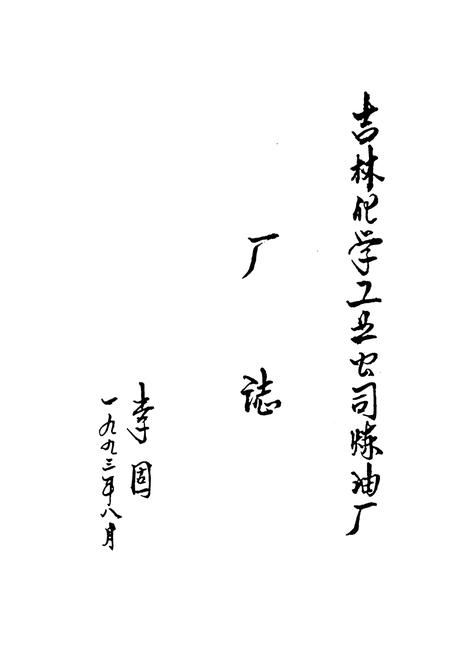 吉林化学工业公司炼油厂
厂誌
李固
一九九三年八月